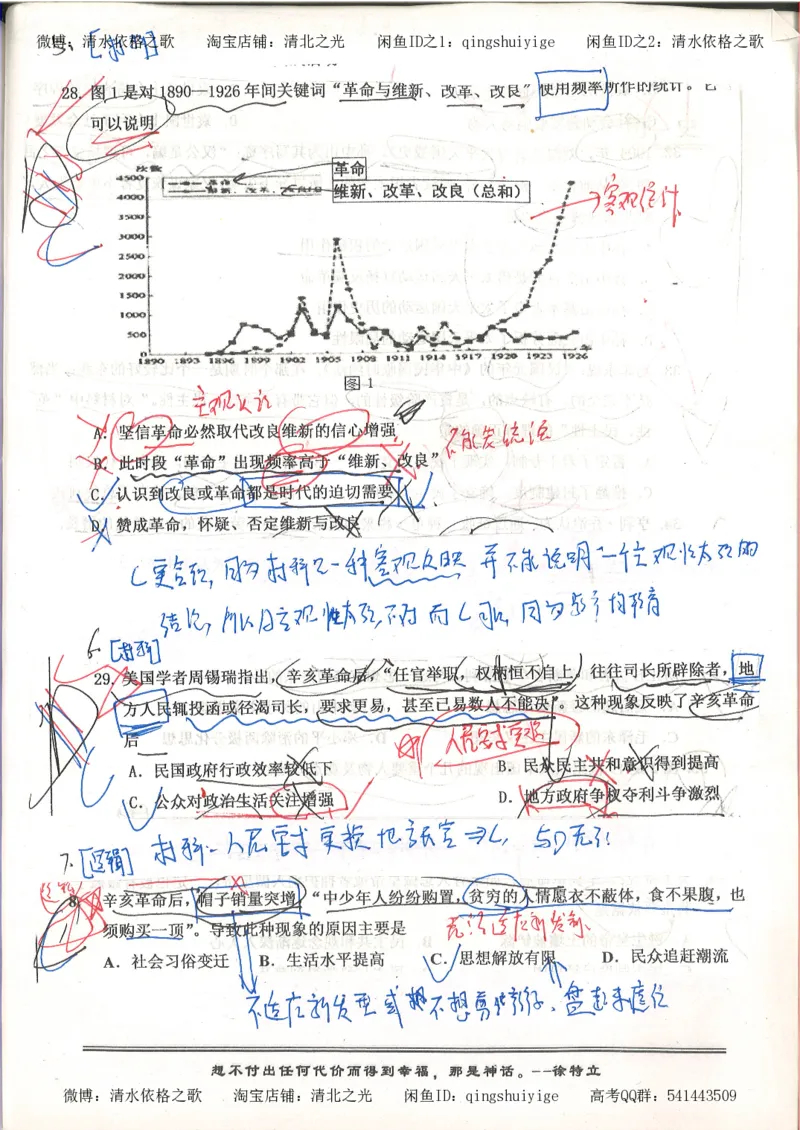 微博：清水依格之歌 淘宝店铺：清北之光 闲鱼ID之1：qingshuiyige 闲鱼ID之2：清水依格之歌
28. 图1是对1890—1926年间关键词“革命与维新、改革、改良”使用频率所作的统计。它
可以说明
次数
革命
维新、改革、改良（总和）
4500
4000
3500
3000
2500
2000
1500
1000
500
0
1890 1893 1896 1899 1902 1905 1908 1911 1914 1917 1920 1923 1926
图1
客观统计
主观认识
A. 坚信革命必然取代改良维新的信心增强
B. 此时段“革命”出现频率高于“维新、改良”
C. 认识到改良或革命都是时代的迫切需要
D. 赞成革命，怀疑、否定维新与改良
C更合适，因为材料是一种客观反映 并不能说明一个主观性太强的
结论，所以
6. [材料]
29. 美国学者周锡瑞指出，辛亥革命后，“任官举取，权柄恒不自上，往往司长所辟除者，地
方人民辄投函或径渴司长，要求更易，甚至已易数人不能决”。这种现象反映了辛亥革命
后
人民要求
A. 民国政府行政效率较低下 B. 民众民主共和意识得到提高
C. 公众对政治生活关注增强 D. 地方政府争权夺利斗争激烈
材料：人民要求更换地方长官⇒C，与D无关
7. [逻辑]
8. 辛亥革命后，帽子销量突增，“中少年人纷纷购置，贫穷的人情愿衣不蔽体，食不果腹，也
须购买一顶”。导致此种现象的原因主要是
无法适应新发制
A. 社会习俗变迁 B. 生活水平提高 C. 思想解放有限 D. 民众追赶潮流
不适应新发型 或 不想剪
想不付出任何代价而得到幸福，那是神话。--徐特立
微博：清水依格之歌 淘宝店铺：清北之光 闲鱼ID：qingshuiyige 高考QQ群：541443509